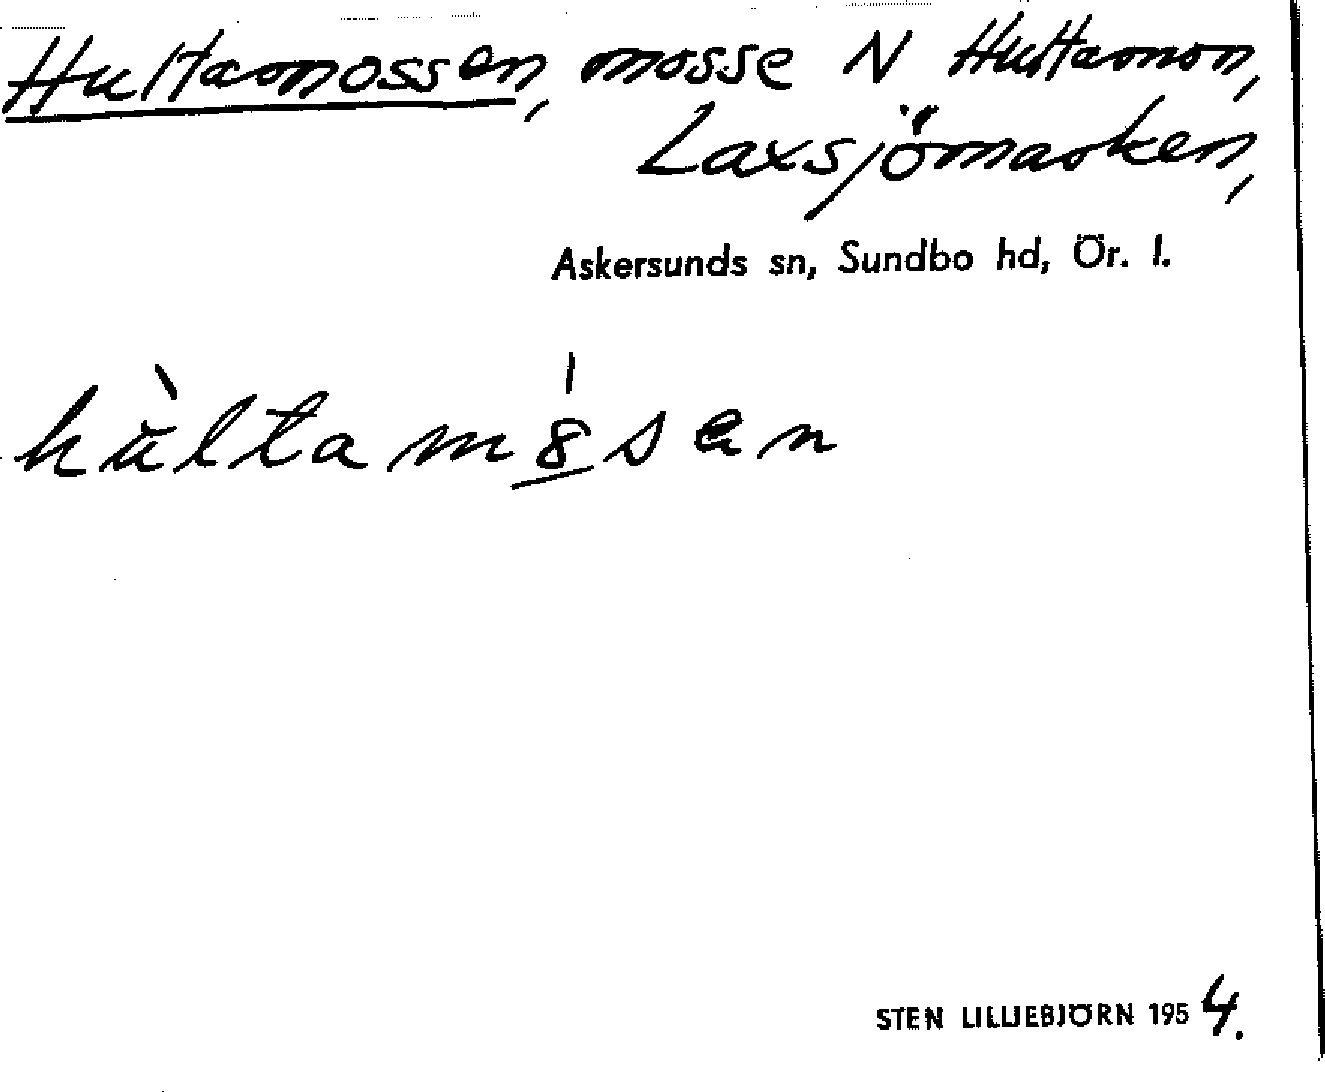 Hultamossen, mosse N Hultamon,
Laxsjömarken,
Askersunds sn, Sundbo hd, Ör. l.
hùltamȯ́sen
STEN LILLJEBJÖRN 1954.